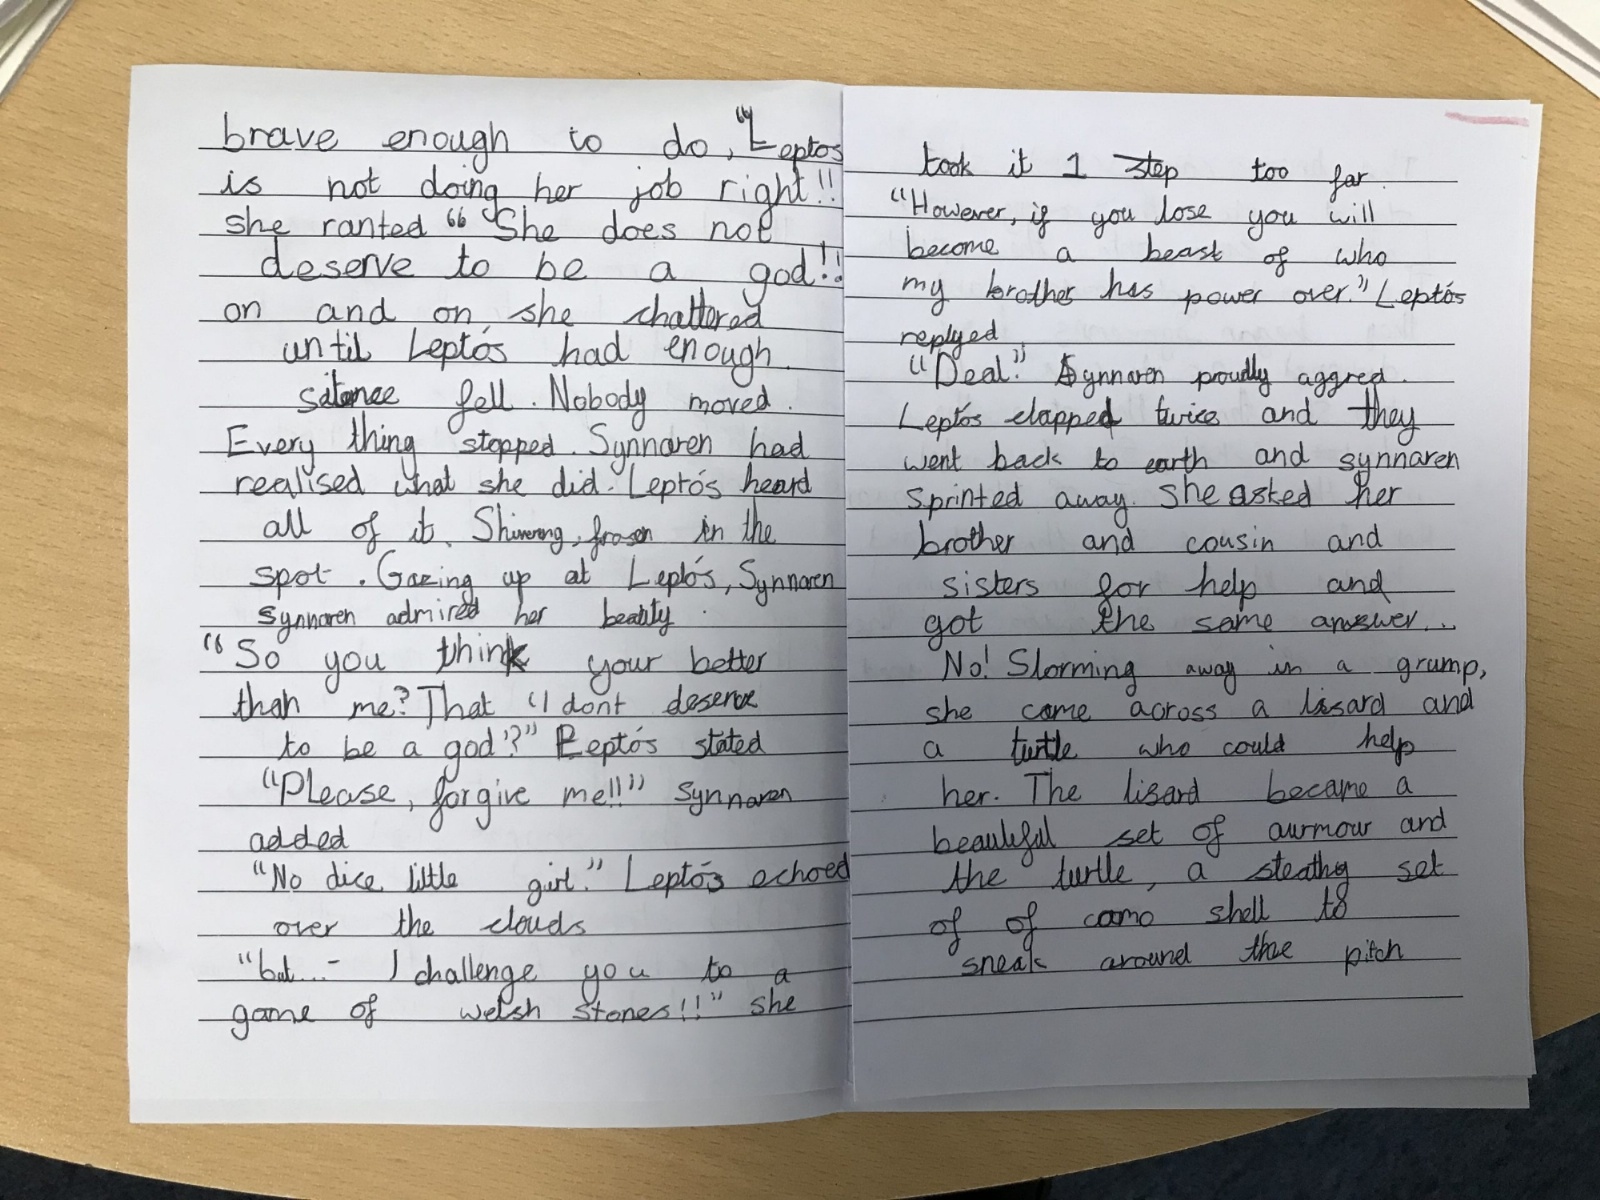 brave enough to do, "Leptos
is not doing her job right!!
she ranted "She does not
deserve to be a god!!
on and on, she chattered
until Leptós had enough.
silence fell. Nobody moved.
Every thing stopped. Synnaren had
realised what she did. Leptós heard
all of it. Shivering, frosen in the
spot. Gazing up at Leptós, Synnaren
synnaren admired her beatity.
"So you think your better
than me? That "I dont deserve
to be a god'?" Leptós stated
"Please, forgive me!!" synnaren
added
"No dice little girl." Leptós echoed
over the clouds
"but...- I challenge you to a
game of welsh stones!!" she
took it 1 step too far.
"However, if you lose you will
become a beast of who
my brother has power over." Leptós
replyed.
"Deal." Synnaren proudly aggred.
Leptós clapped twice and they
went back to earth and synnaren
sprinted away. she asked her
brother and cousin and
sisters for help and
got the same answer...
No! Storming away in a grump,
she came across a lisard and
a turtle who could help
her. The lisard became a
beautiful set of aurmour and
the turtle, a steathy set
of of camo shell to
sneak around the pitch